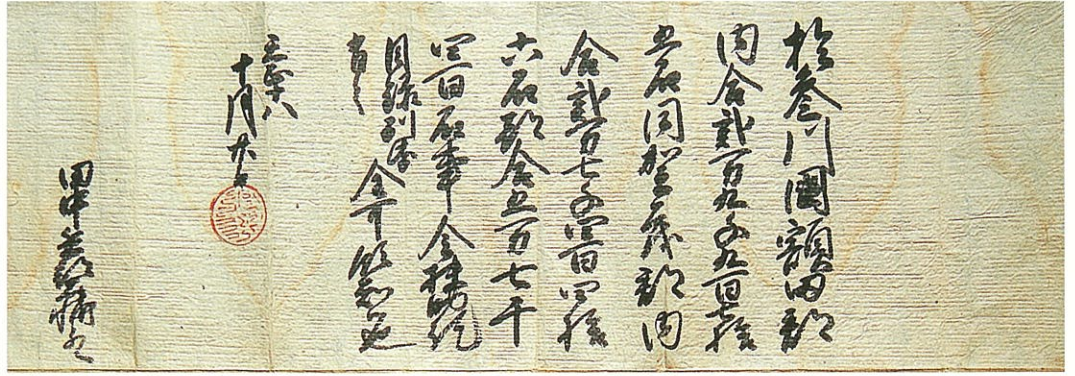 於叁川國額田郡
内合貳万九千九百七拾
五石同賀茂郡内
合貳万七千四百四拾
六石都合五万七千
四百石事令扶助訖
目録別帋有之全可領知也
天正十八
十月廿日
田中兵部大輔とのへ